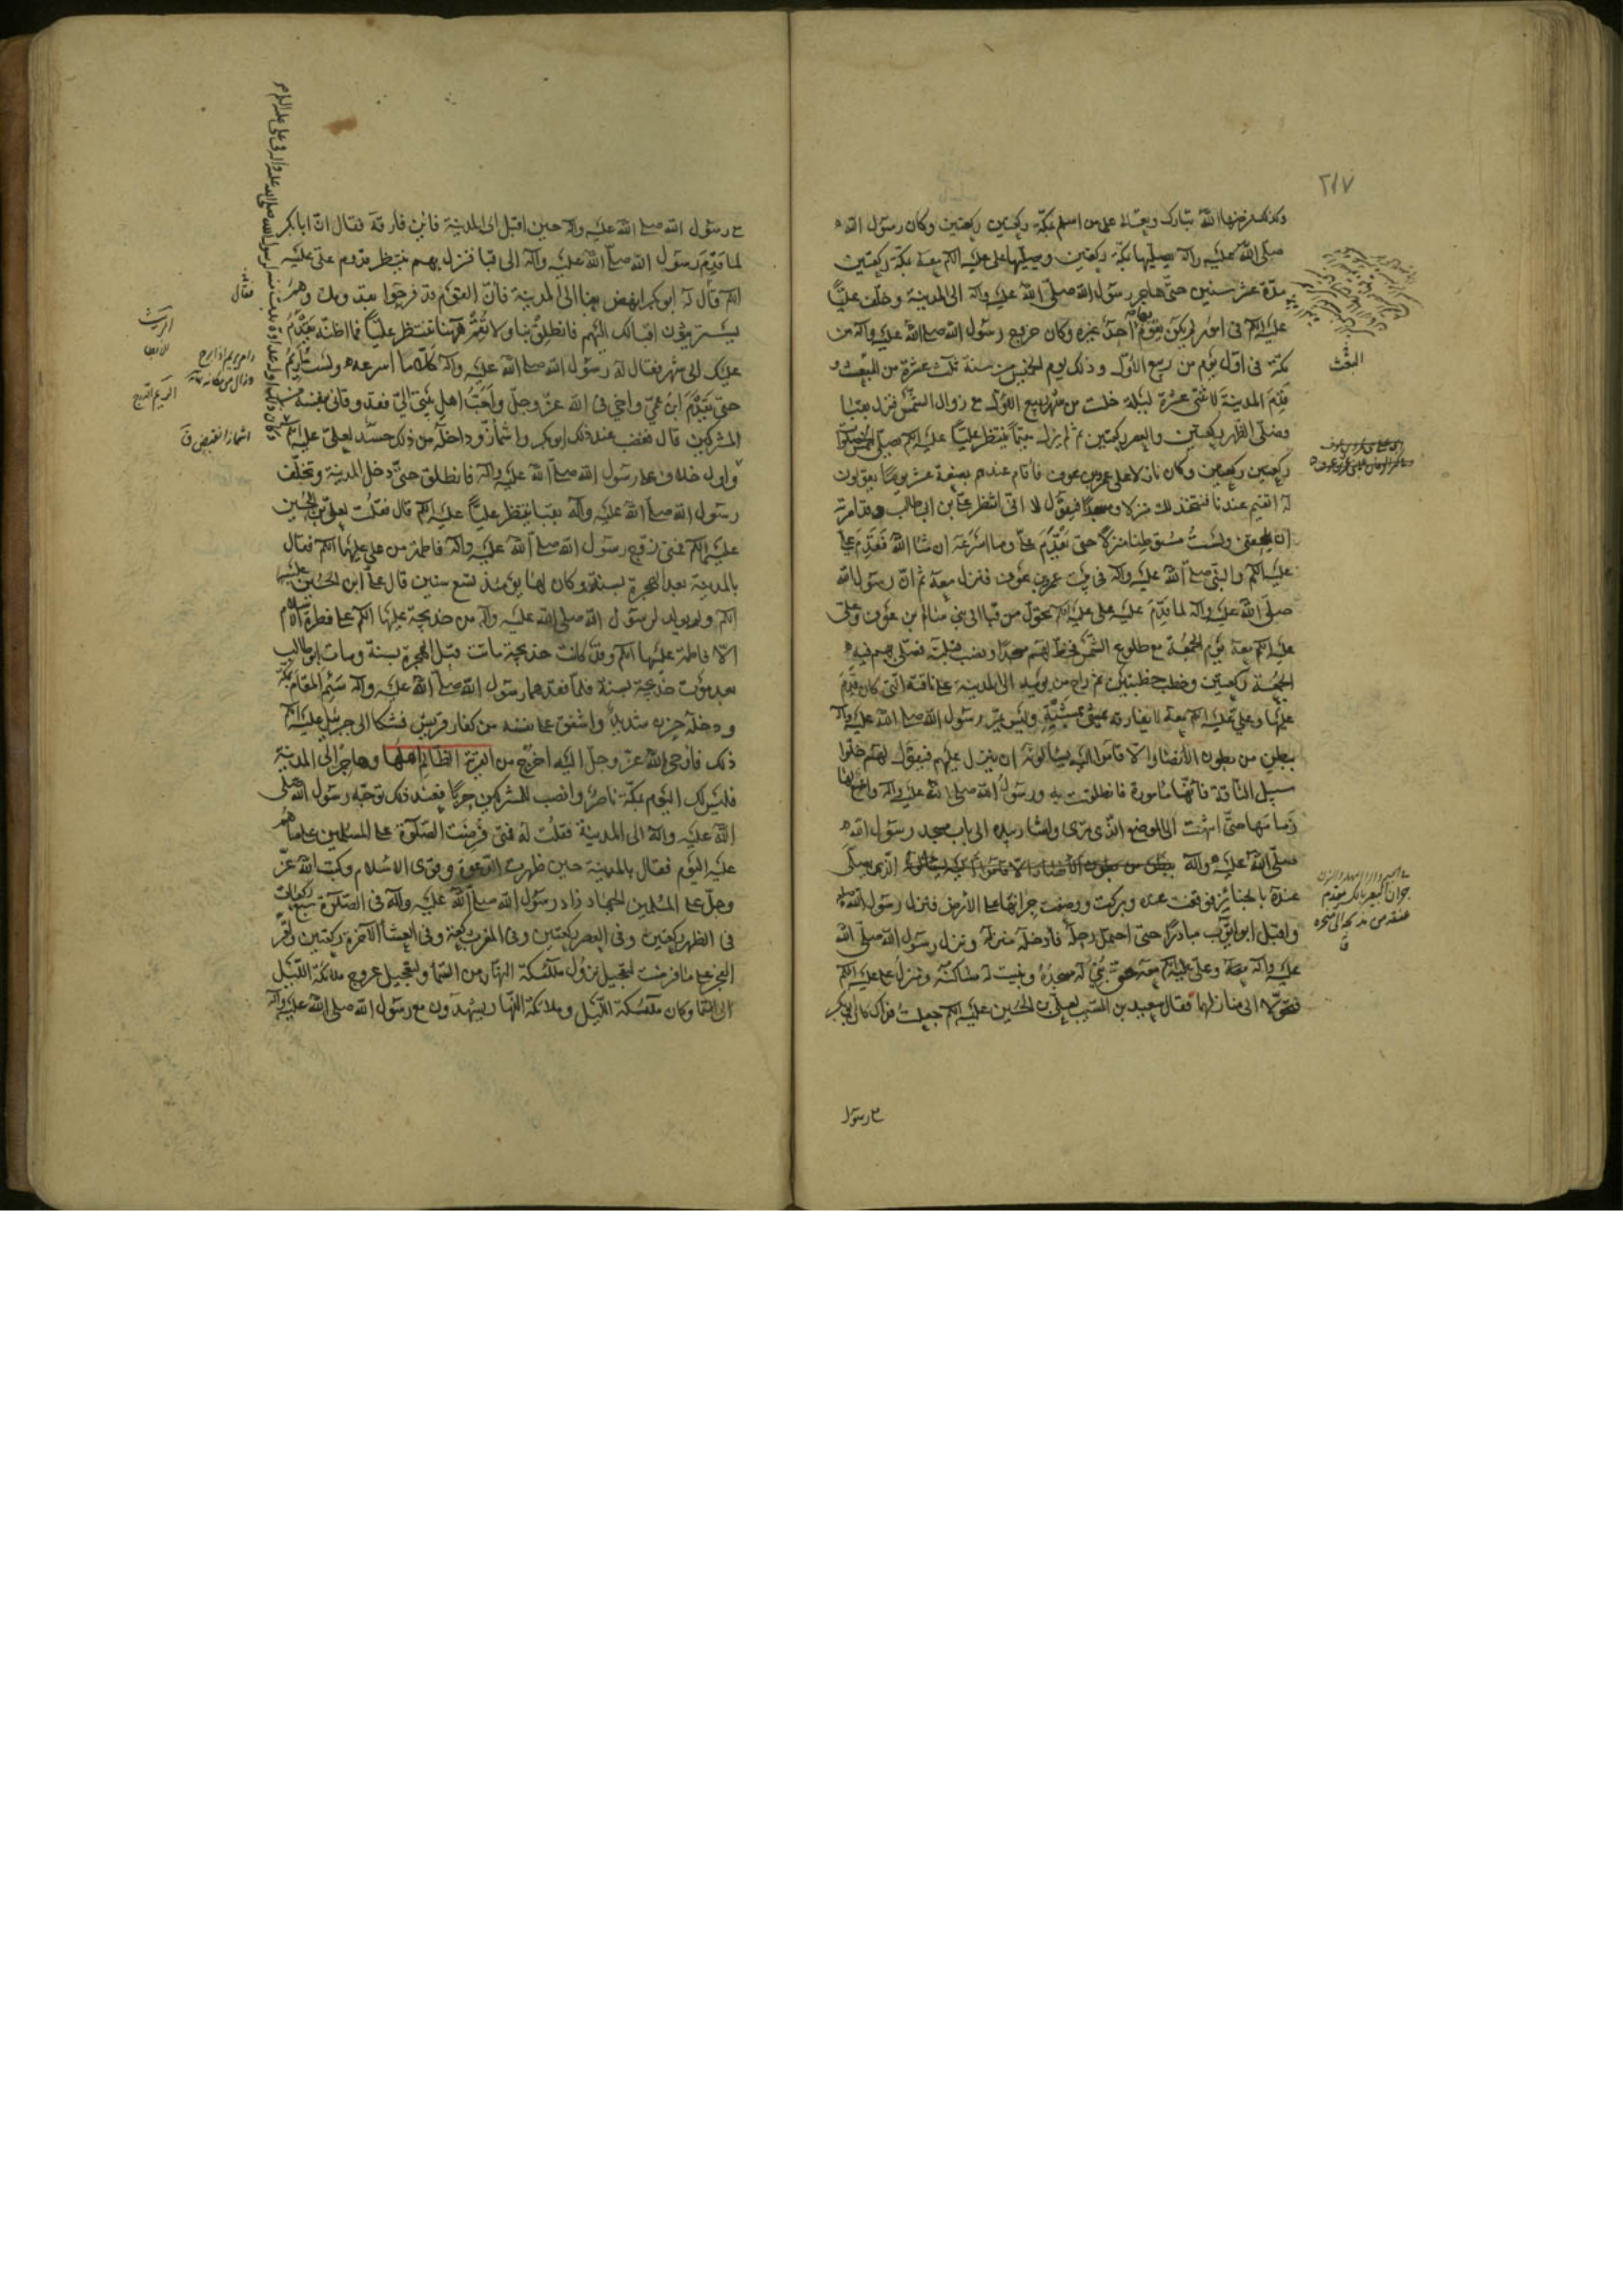 ٢١٧
وكذلك فرضها الله تبارك وتعالى على من اسلم بمكة ركعتين ركعتين وكان رسول الله
صلى الله عليه وآله يصليها بمكة ركعتين ويصليها على عليه السلم معه بمكة ركعتين
مدة عشر سنين حتى هاجر رسول الله صلى الله عليه وآله الى المدينة وخلف عليا
عليه السلم فى امور لم يكن يقوم بها احد غيره وكان خروج رسول الله صلى الله عليه وآله من
مكة فى اول يوم من ربيع الاول وذلك يوم الخميس من سنة ثلث عشرة من المبعث و
قدم المدينة لاثنتى عشرة ليلة خلت من شهر ربيع الاول مع زوال الشمس فنزل بقبا
فصلى الظهر ركعتين والعصر ركعتين ثم لم يزل مقيما ينتظر عليا عليه السلم يصلى الخمس صلوات
ركعتين ركعتين وكان نازلا على عمرو بن عوف فاقام عندهم بضعة عشر يوما يقولون
له اتقيم عندنا فنتخذ لك منزلا ومسجدا فيقول لا انى انتظر على بن ابى طالب وقد امرته
ان يلحقنى ولست مستوطنا منزلا حتى يقدم على وما اسرعه ان شا الله فقدم على
عليه السلم والنبى صلى الله عليه وآله فى بيت عمرو بن عوف فنزل معه ثم ان رسول الله
صلى الله عليه وآله لما قدم عليه على عليه السلم تحول من قبا الى بنى سالم بن عوف وعلى
عليه السلم معه يوم الجمعة مع طلوع الشمس فخط لهم مسجدا ونصب قبلته فصلى بهم فيه
الجمعة ركعتين وخطب خطبتين ثم راح من يومه الى المدينة على ناقته التى كان قدم
عليها وعلى عليه السلم معه لا يفارقه يمشى بمشيه وليس يمر رسول الله صلى الله عليه وآله
ببطن من بطون الانصار الا قاموا اليه يسألونه ان ينزل عليهم فيقول لهم خلوا
سبيل الناقة فانها مأمورة فانطلقت به ورسول الله صلى الله عليه وآله واضع لها
زمامها حتى انتهت الى الموضع الذى ترى واشار بيده الى باب مسجد رسول الله
صلى الله عليه وآله الذى يصلى
عنده بالجنائز فوقفت عنده وبركت ووضعت جرانها على الارض فنزل رسول الله
واقبل ابو ايوب مبادرا حتى احتمل رحله فادخله منزله ونزل رسول الله صلى الله
عليه وآله معه وعلى عليه السلم معه حتى بنى له مسجده وبنيت له مساكنه ومنزل على عليه السلم
فتحولا الى منازلهما فقال سعيد بن المسيب لعلى بن الحسين عليه السلم جعلت فداك كان ابو بكر
مع رسول
البعث
جران البعير بالكسر مقدم
عنقه من مذبحه الى منحره
ق
مع رسول الله صلى الله عليه وآله حين اقبل الى المدينة فاين فارقه فقال ان ابا بكر
لما قدم رسول الله صلى الله عليه وآله الى قبا فنزل بهم ينتظر قدوم على عليه
السلم قال له ابو بكر انهض بنا الى المدينة فان القوم قد فرحوا بقدومك وهم
يستريثون اقبالك اليهم فانطلق بنا ولا تقم ههنا تنتظر عليا فما اظنه يقدم
عليك الى شهر فقال له رسول الله صلى الله عليه وآله كلا ما اسرعه ولست اريم
حتى يقدم ابن عمى واخى فى الله عز وجل واحب اهل بيتى الى فقد وقانى بنفسه من
المشركين قال فغضب عند ذلك ابو بكر واشمأز وداخله من ذلك حسد لعلى عليه السلم
واول خلاف على رسول الله صلى الله عليه وآله فانطلق حتى دخل المدينة وتخلف
رسول الله صلى الله عليه وآله بقبا ينتظر عليا عليه السلم قال فقلت لعلى بن الحسين
عليهما السلم فمتى زوج رسول الله صلى الله عليه وآله فاطمة من على عليهما السلم فقال
بالمدينة بعد الهجرة بسنة وكان لها يومئذ تسع سنين قال على ابن الحسين عليهما
السلم ولم يولد لرسول الله صلى الله عليه وآله من خديجة عليها السلم على فطرة الاسلام
الا فاطمة عليها السلم وقد كانت خديجة ماتت قبل الهجرة بسنة ومات ابو طالب
بعد موت خديجة بسنة فلما فقدهما رسول الله صلى الله عليه وآله سئم المقام بمكة
ودخله حزن شديد واشفق على نفسه من كفار قريش فشكا الى جبرئيل عليه السلم
ذلك فاوحى الله عز وجل اليه اخرج من القرية الظالم اهلها وهاجر الى المدينة
فليس لك اليوم بمكة ناصر وانصب للمشركين حربا فعند ذلك توجه رسول الله صلى
الله عليه وآله الى المدينة فقلت له فمتى فرضت الصلوة على المسلمين على ما هم
عليه اليوم فقال بالمدينة حين ظهرت الدعوة وقوى الاسلام وكتب الله عز
وجل على المسلمين الجهاد زاد رسول الله صلى الله عليه وآله فى الصلوة سبع ركعات
فى الظهر ركعتين وفى العصر ركعتين وفى المغرب ركعة وفى العشأ الآخرة ركعتين واقر
الفجر على ما فرضت لتعجيل نزول ملئكة النهار من السمأ ولتعجيل عروج ملائكة الليل
الى السمأ وكان ملئكة الليل وملائكة النهار يشهدون مع رسول الله صلى الله عليه وآله
فقال
الريث
الابطا
اشمأز انقبض ق
وكان ذلك اول عداوة بدت منه لرسول الله صلى الله عليه وآله فى على عليه السلام